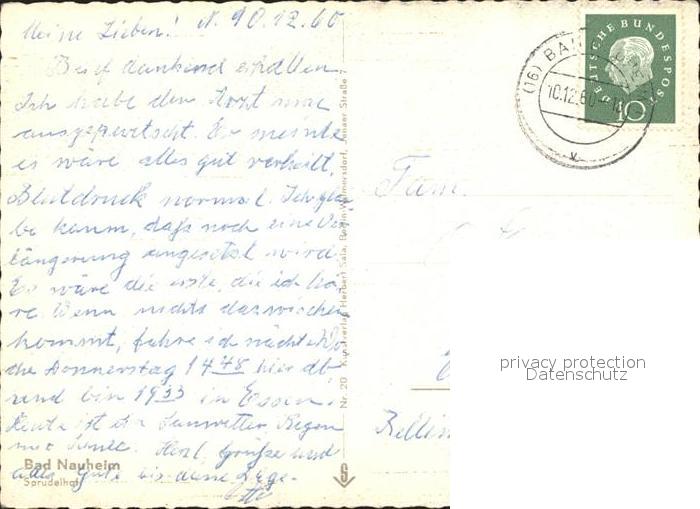 Meine Lieben! N. 10.12.60
Brief dankend erhalten
Ich habe den Arzt mal
ausgequetscht. Er meinte
es wäre alles gut verheilt,
Blutdruck normal. Ich glau
be kaum, daß noch eine Ver
längerung angesetzt wird.
Es wäre die erste, die ich hö
re. Wenn nichts dazwischen
kommt, fahre ich nächste Wo
che Donnerstag 14 48 hier ab
und bin 19 33 in Essen.
Heute ist ein Sauwetter Regen
mit Herzl. Grüße und
alles Gute bis dahin
Bad Nauheim
Sprudelhof
Nr. 20 Kunstverlag Herbert Sala, Berlin-Wilmersdorf, Jenaer Straße 7
Fam.
(16) BAD
10.12.60
DEUTSCHE BUNDESPOST
10
privacy protection
Datenschutz